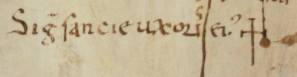 Sig̃ sancie uxoris ei⁹